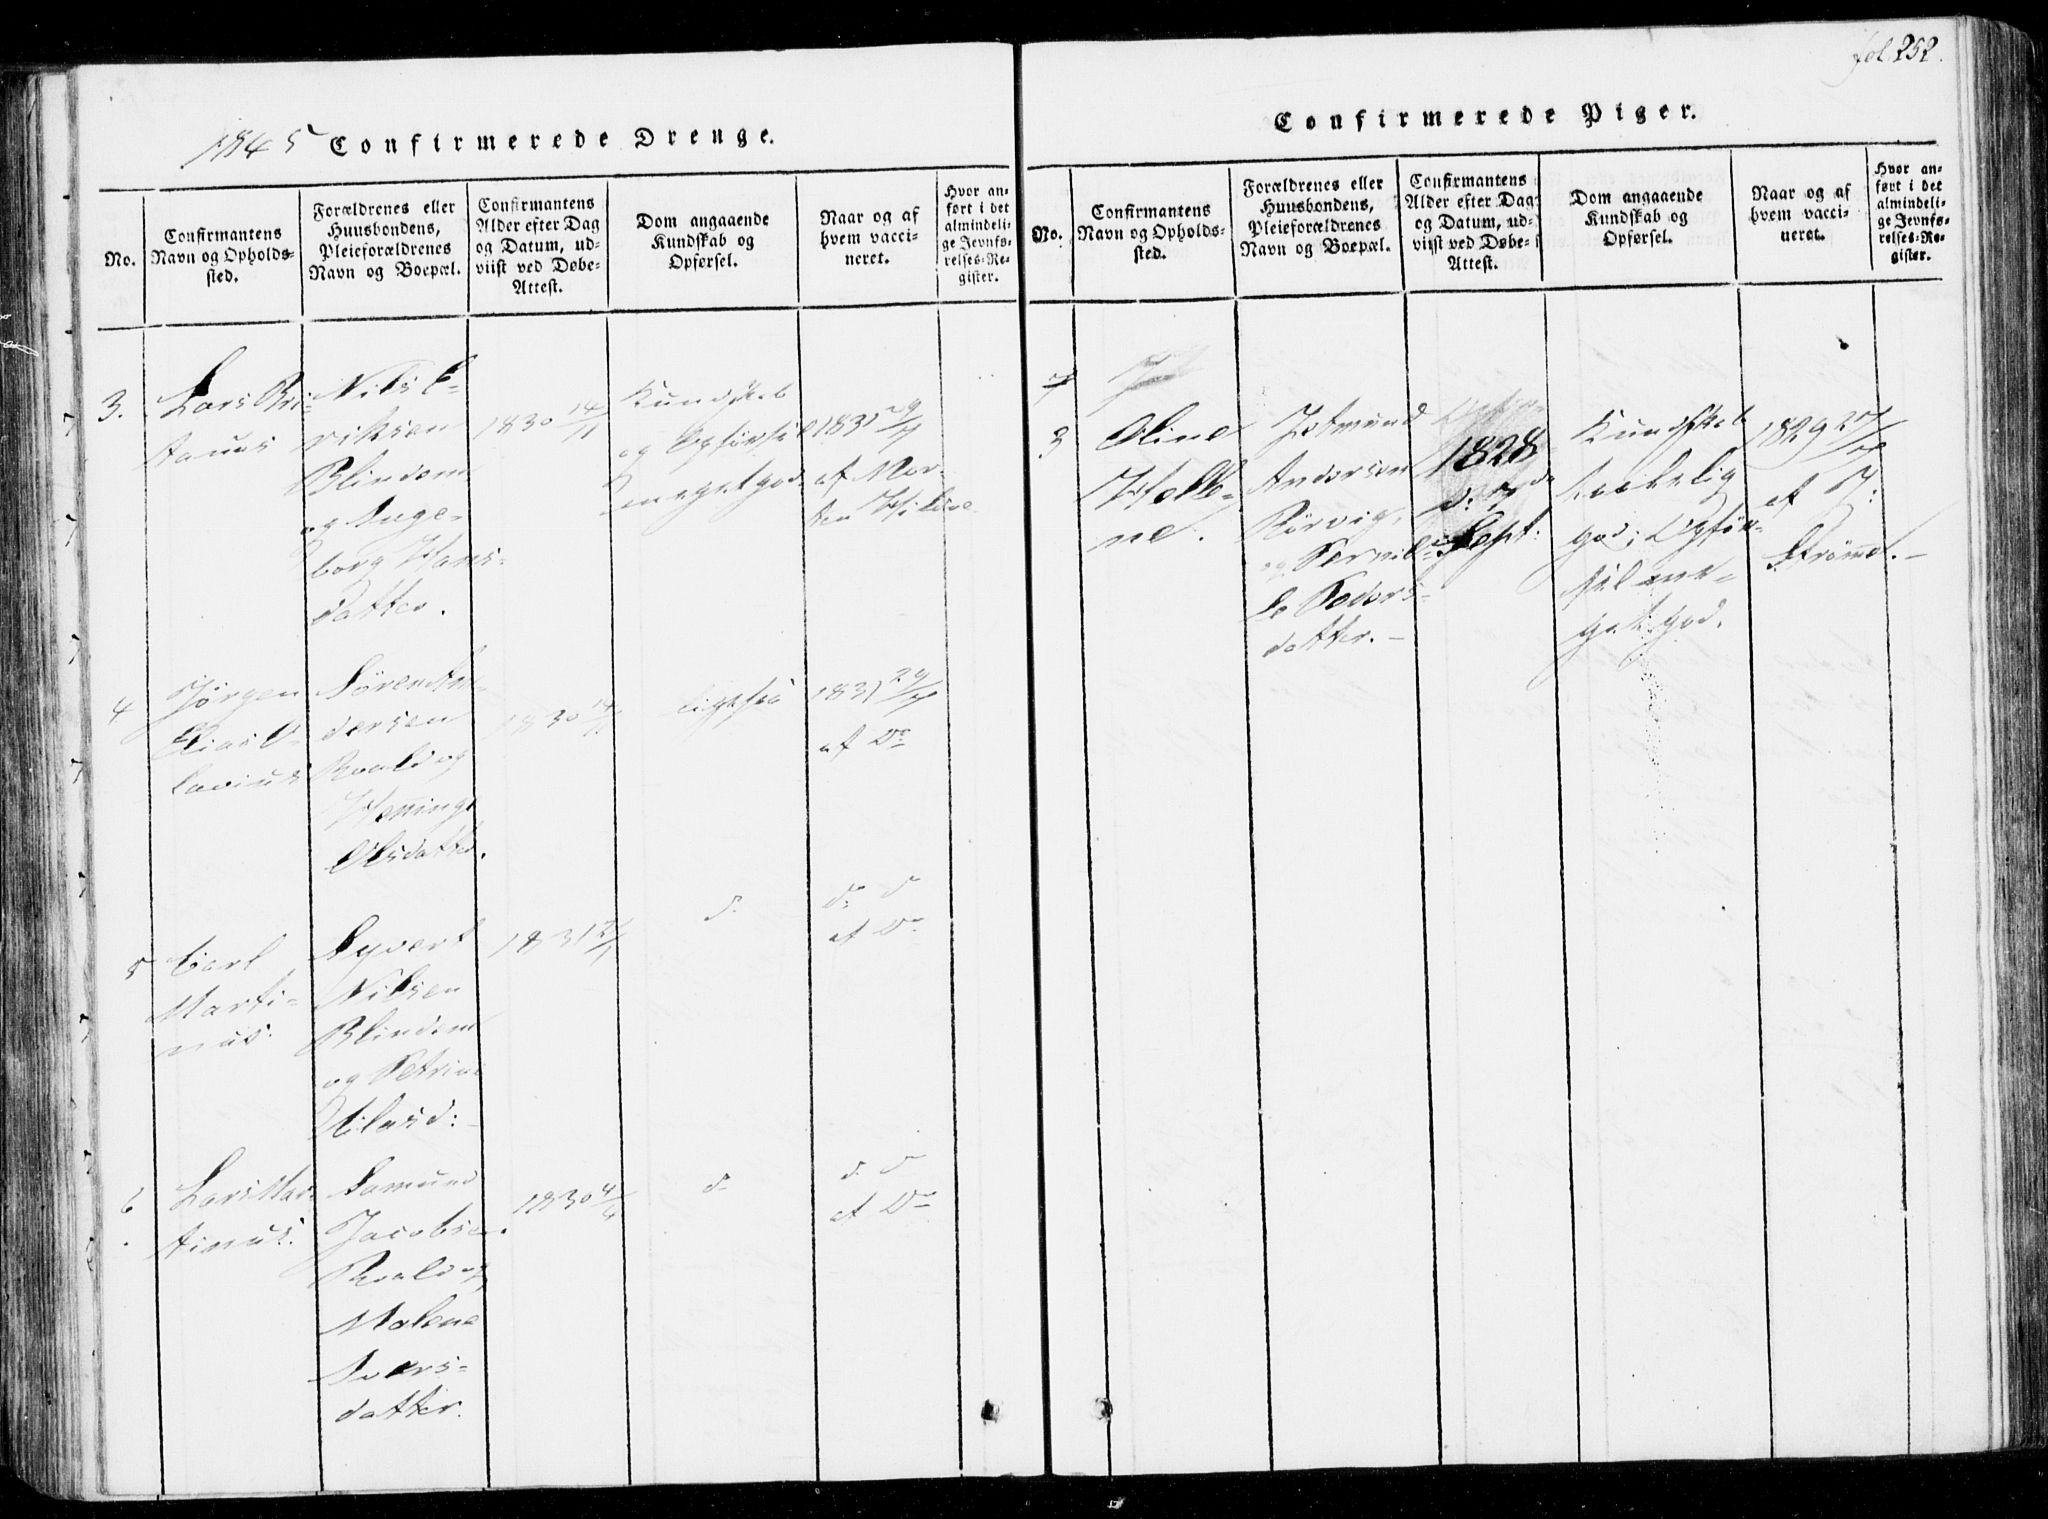 fol. 252.
1845 Confirmerede Drenge.
No.
Confirmantens
Navn og Opholds-
sted.
Forældrenes eller
Huusbondens,
Pleieforældrenes
Navn og Boepæl.
Confirmantens
Alder efter Dag
og Datum, ud-
viist ved Døbe-
Attest.
Dom angaaende
Kundskab og
Opførsel.
Naar og af
hvem vacci-
neret.
Hvor an-
ført i det
almindeli-
ge Jevnfø-
relses-Re-
gister.
3.
Lars
Nils E-
riksen
Blindem
og Inge-
borg Hans-
datter.
1830 14/11
Kundskab
og Opførsel
meget god.
1831 29/7
af Mor-
ten
4
Jørgen
Elias O-
lavius
Søren An-
dersen
Roald og
Henning
Olsdatter.
1830
ligesaa
1831 29/7
af Do
5
Carl
Marti-
nus.
Syvert
Nilsen
Blindem
og Petrine
Olasd:
1831
d.
d. d
af Do
6
Lars Mar-
tinus.
Samund
Jacobsen
Roald og
Malene
Ivers-
datter.
1830 4/4
d.
d. d
af Do
Confirmerede Piger.
No.
Confirmantens
Navn og Opholds-
sted.
Forældrenes eller
Huusbondens,
Pleieforældrenes
Navn og Boepæl.
Confirmantens
Alder efter Dag
og Datum, ud-
viist ved Døbe-
Attest.
Dom angaaende
Kundskab og
Opførsel.
Naar og af
hvem vacci-
neret.
Hvor an-
ført i det
almindeli-
ge Jevnfø-
relses-Re-
gister.
3
Oline
Helle-
ne.
Jetmund
Andersen
Rørvig,
og Pernil-
le Peders-
datter.-
1828
d: 7de
Sept:
Kundskab
taalelig
god; Opfør-
sel me-
get god.
1829 27/7
af J:
Strømme.-